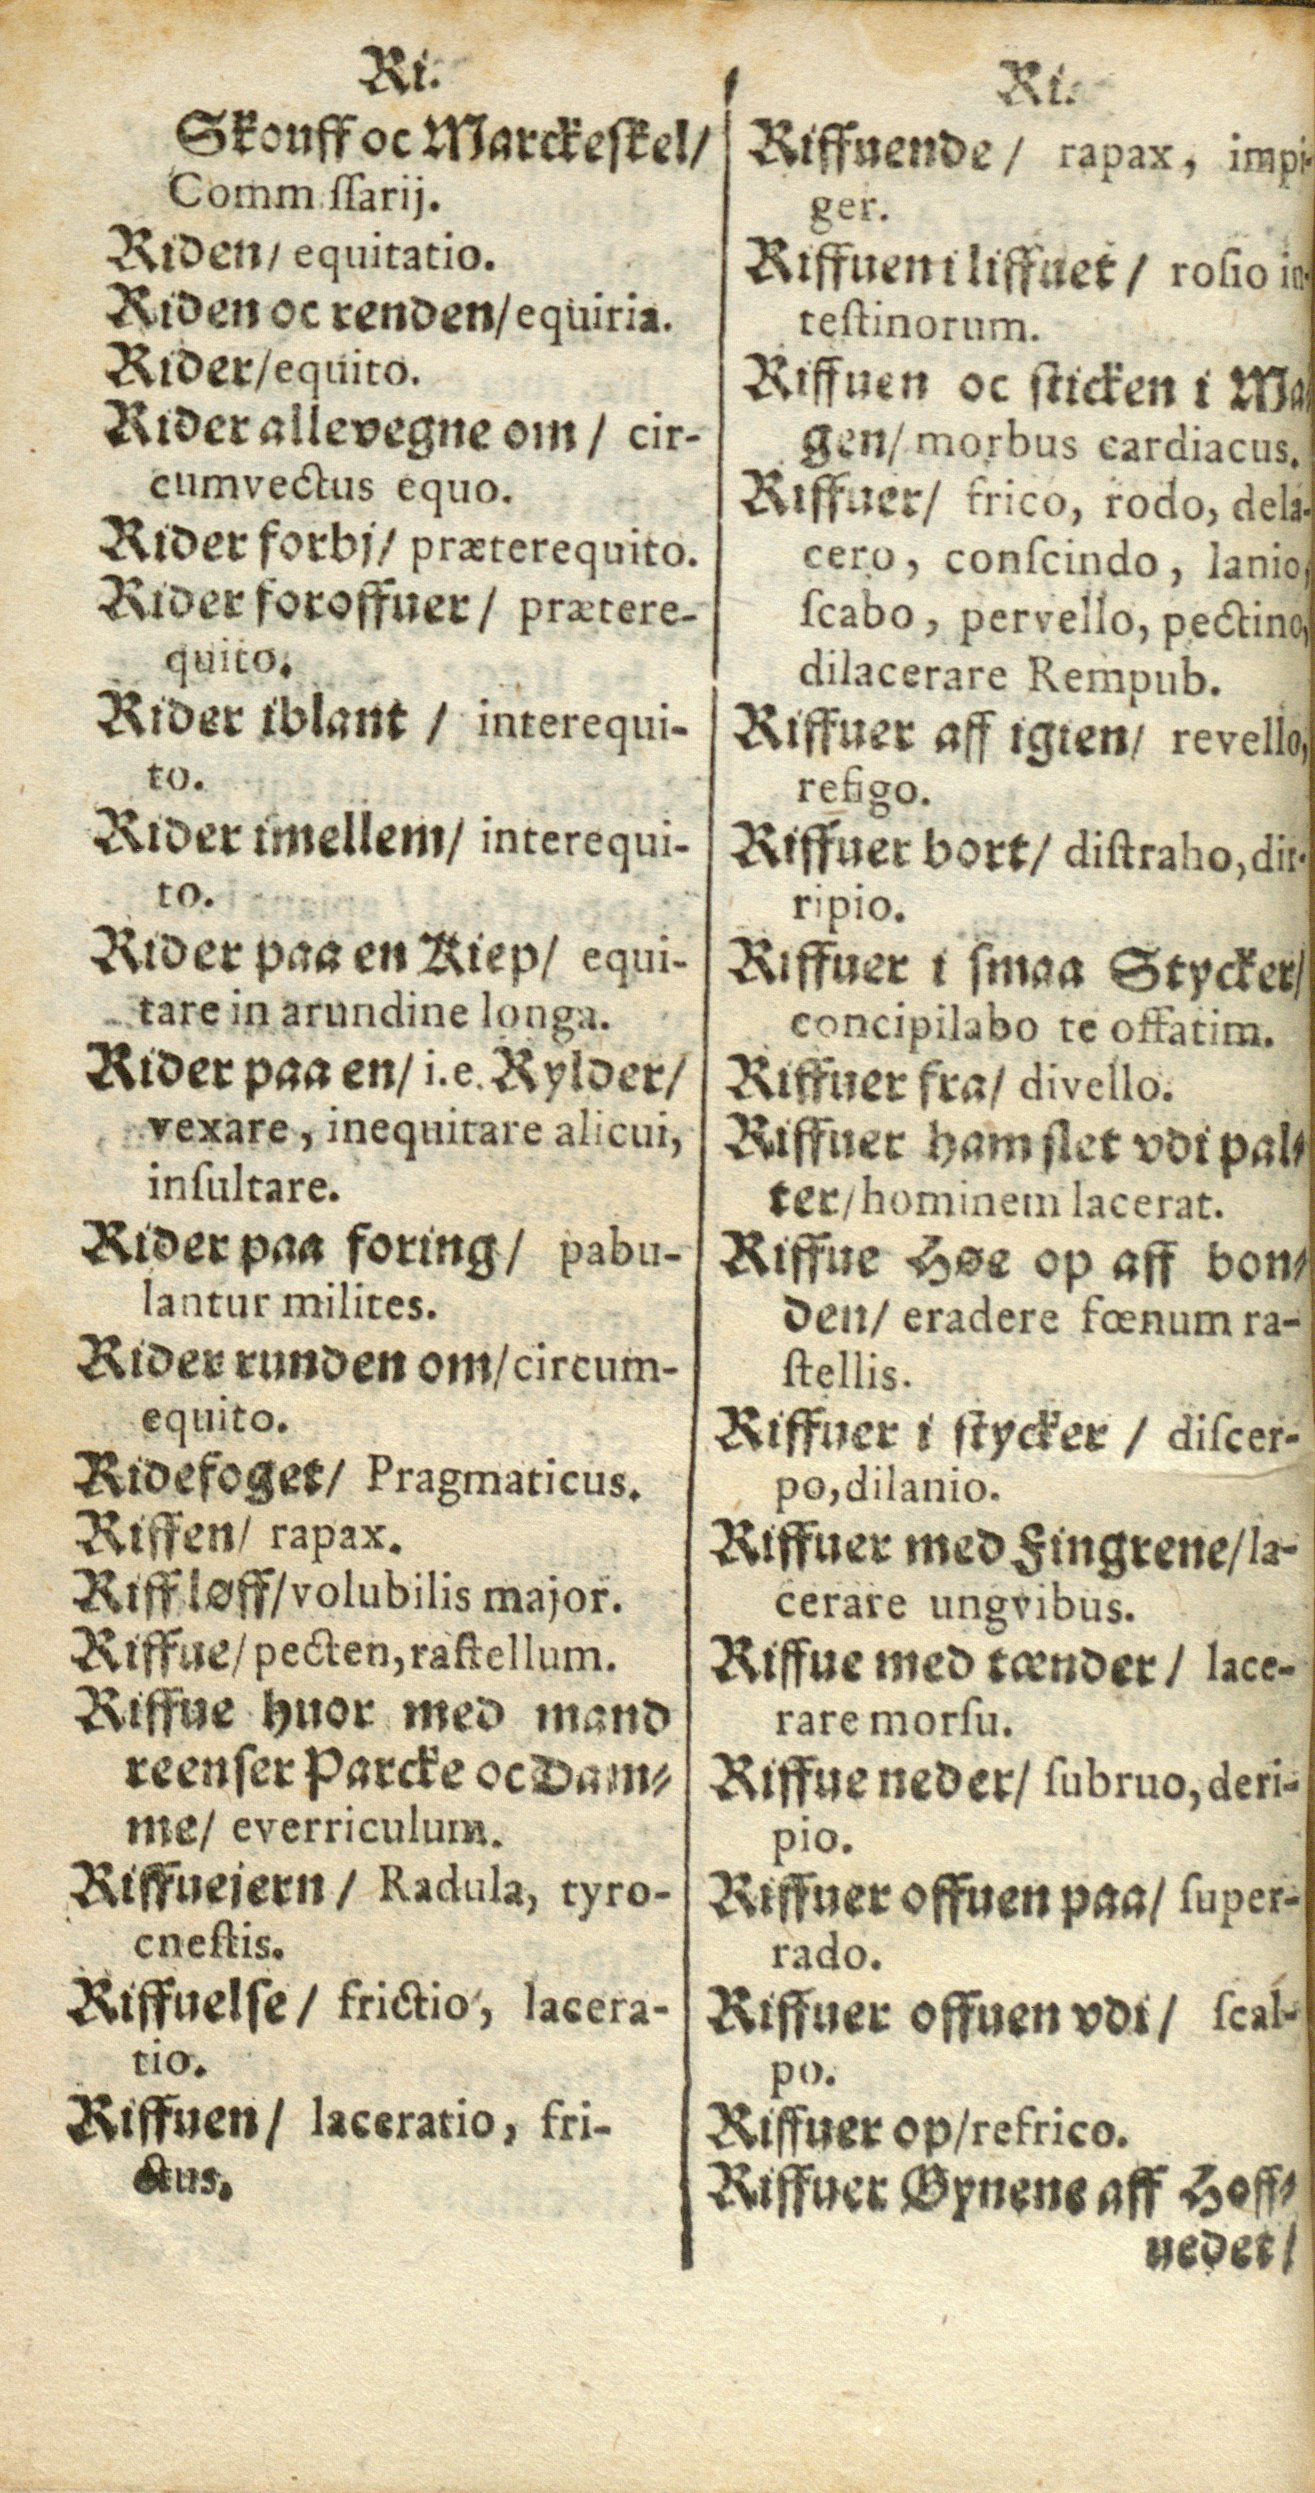 Ri.
Skouff oc Marckeſkel/
Comm ſſarij.
Riden/ equitatio.
Riden oc renden/ equiria.
Rider/ equito.
Rider allevegne om / cir-
cumvectus equo.
Rider forbj/ præterequito.
Rider foroffuer / prætere-
quito.
Rider iblant / interequi-
to.
Rider imellem/ interequi-
to.
Rider paa en Kiep/ equi-
tare in arundine longa.
Rider paa en/ i.e. Rylder/
vexare, inequitare alicui,
inſultare.
Rider paa foring/ pabu-
lantur milites.
Rider runden om/ circum-
equito.
Ridefoget/ Pragmaticus.
Riffen/ rapax.
Riff løff/ volubilis major.
Riffue/ pecten, raſtellum.
Riffue huor med mand
reenſer Parcke oc Dam-
me/ everriculum.
Riffuejern / Radula, tyro-
cneſtis.
Riffuelſe / frictio, lacera-
tio.
Riffuen/ laceratio, fri-
ctus.
Ri.
Riffuende / rapax, impi-
ger.
Riffuen i liffuet / roſio in-
teſtinorum.
Riffuen oc ſticken i Ma-
gen/ morbus cardiacus.
Riffuer/ frico, rodo, dela-
cero, conſcindo, lanio,
ſcabo, pervello, pectino,
dilacerare Rempub.
Riffuer aff igien/ revello,
refigo.
Riffuer bort/ diſtraho, dir-
ripio.
Riffuer i ſmaa Stycker/
concipilabo te offatim.
Riffuer fra/ divello.
Riffuer ham ſlet vdi pal-
ter/ hominem lacerat.
Riffue Høe op aff bon-
den/ eradere fœnum ra-
ſtellis.
Riffuer i ſtycker / diſcer-
po, dilanio.
Riffuer med Fingrene/ la-
cerare ungvibus.
Riffue med tænder / lace-
rare morſu.
Riffue neder/ ſubruo, deri-
pio.
Riffuer offuen paa/ ſuper-
rado.
Riffuer offuen vdi / ſcal-
po.
Riffuer op/ refrico.
Riffuer Øynene aff Hoff-
uedet/